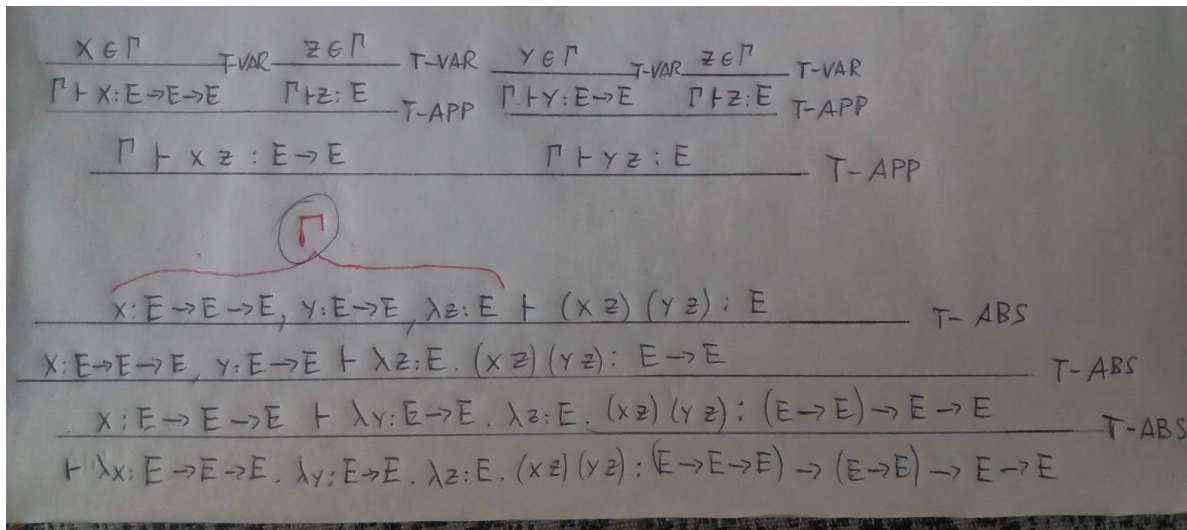 X ∈ Γ T-VAR Z ∈ Γ T-VAR Y ∈ Γ T-VAR Z ∈ Γ T-VAR
Γ ⊢ X : E → E → E Γ ⊢ Z : E T-APP Γ ⊢ Y : E → E Γ ⊢ Z : E T-APP
Γ ⊢ X Z : E → E Γ ⊢ Y Z : E T-APP
Γ
X : E → E → E, Y : E → E, λZ : E ⊢ (X Z) (Y Z) : E T-ABS
X : E → E → E, Y : E → E ⊢ λZ : E. (X Z) (Y Z) : E → E T-ABS
X : E → E → E ⊢ λY : E → E. λZ : E. (X Z) (Y Z) : (E → E) → E → E T-ABS
⊢ λX : E → E → E. λY : E → E. λZ : E. (X Z) (Y Z) : (E → E → E) → (E → E) → E → E